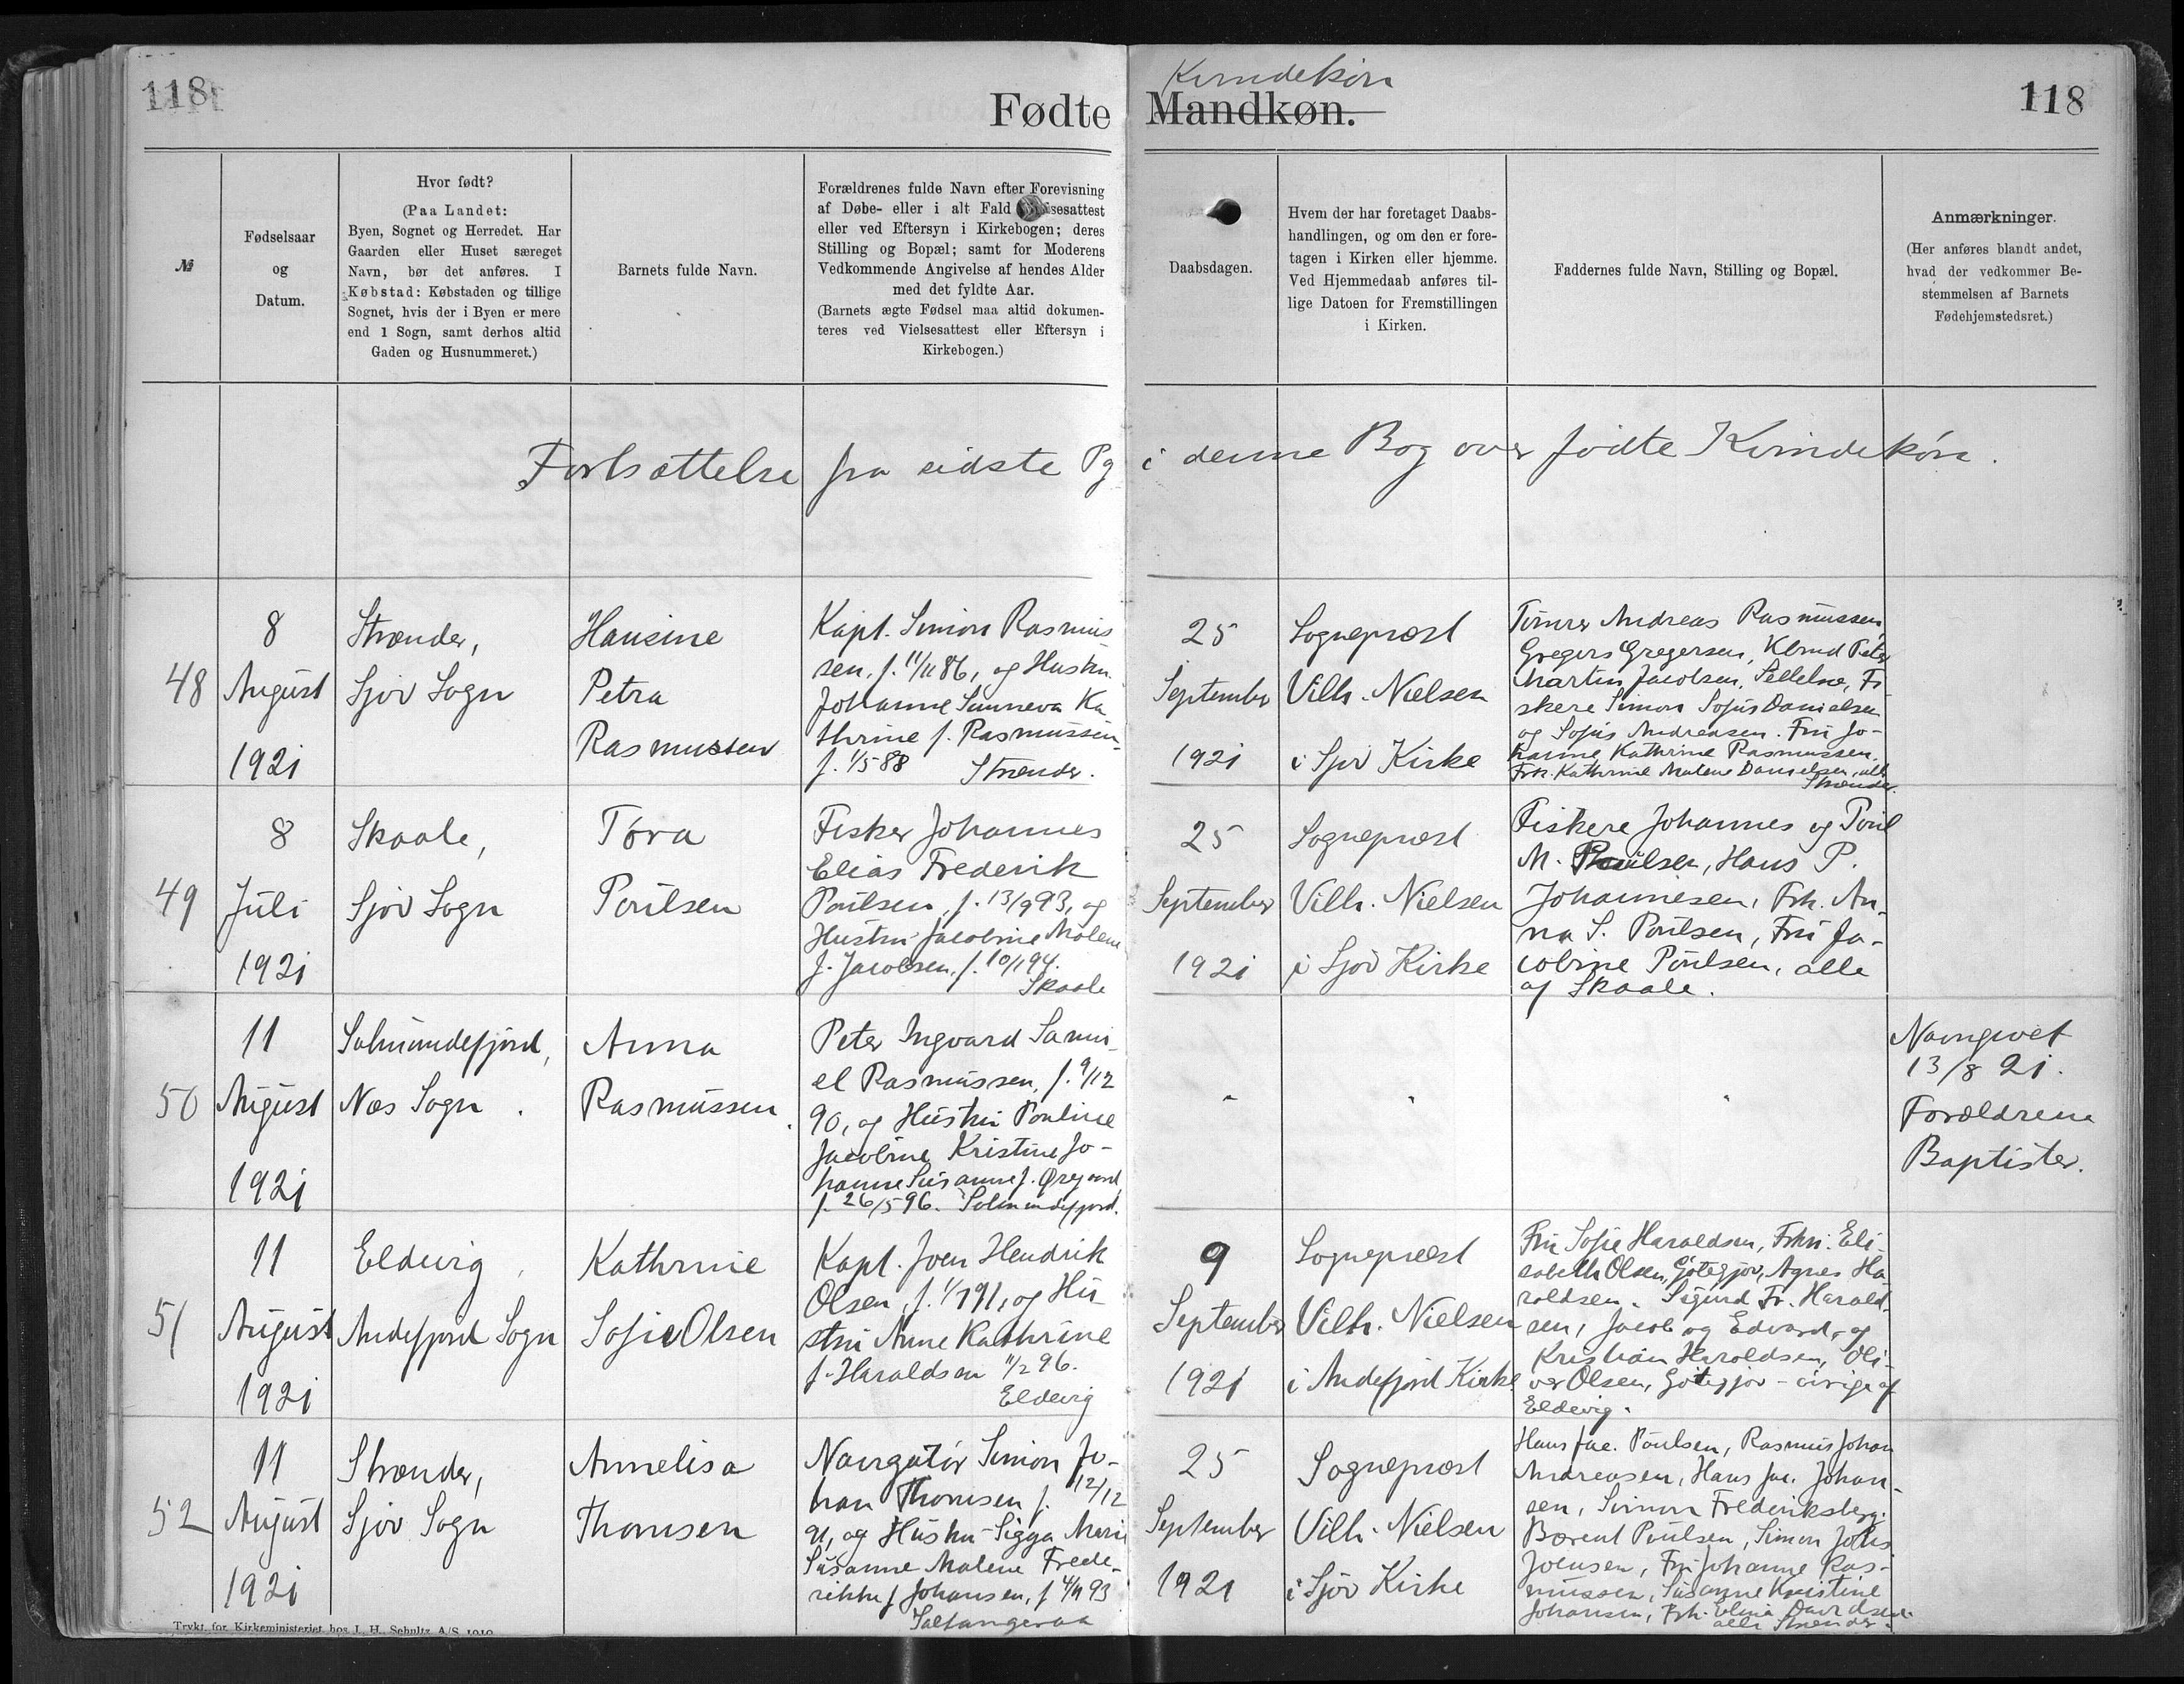 118
Kvindekøn
Fødte Mandkøn.
118
№
Fødselsaar
og
Datum.
Hvor født?
(Paa Landet:
Byen, Sognet og Herredet. Har
Gaarden eller Huset særeget
Navn, bør det anføres. I
Købstad: Købstaden og tillige
Sognet, hvis der i Byen er mere
end 1 Sogn, samt derhos altid
Gaden og Husnummeret.)
Barnets fulde Navn.
Forældrenes fulde Navn efter Forevisning
af Døbe- eller i alt Fald
eller ved Eftersyn i Kirkebogen; deres
Stilling og Bopæl; samt for Moderens
Vedkommende Angivelse af hendes Alder
med det fyldte Aar.
(Barnets ægte Fødsel maa altid dokumen-
teres ved Vielsesattest eller Eftersyn i
Kirkebogen.)
Daabsdagen.
Hvem der har foretaget Daabs-
handlingen, og om den er fore-
tagen i Kirken eller hjemme.
Ved Hjemmedaab anføres til-
lige Datoen for Fremstillingen
i Kirken.
Faddernes fulde Navn, Stilling og Bopæl.
Anmærkninger.
(Her anføres blandt andet,
hvad der vedkommer Be-
stemmelsen af Barnets
Fødehjemstedsret.)
Fortsættelse fra sidste Pg i denne Bog over fødte Kvindekøn.
48
8
August
1921
Strænder,
Sjov Sogn
Hansine
Petra
Rasmussen
Kapt. Simon Rasmus
sen, f. 11/11 86, og Hustru
Johanne Sunneva Ka
thrine f. Rasmussen
f. 1/5 88 Strænder.
25
September
1921
Sognepræst
Vilh. Nielsen
i Sjov Kirke
Tømrer Andreas Rasmussen,
Gregers Gregersen, Peter
Martin Jacobsen, Fi
skere Simon Sofus Danielsen
og Sofus Andreasen. Fru Jo-
hanne Kathrine Rasmussen,
Frk. Kathrine Malene Danielsen, alle
Strænder.
49
8
Juli
1921
Skaale,
Sjov Sogn
Tóra
Poulsen
Fisker Johannes
Elias Frederik
Poulsen, f. 13/9 93, og
Hustru Jacobine Malene
f. Jacobsen, f. 10/1 94.
Skaale
25
September
1921
Sognepræst
Vilh. Nielsen
i Sjov Kirke
Fiskere Johannes og Poul
M. Poulsen, Hans P.
Johannesen, Frk. An-
na S. Poulsen, Fru Ja-
cobine Poulsen, alle
af Skaale.
50
11
August
1921
Salmundefjord,
Næs Sogn.
Anna
Rasmussen.
Peter Ingvard Samu-
el Rasmussen, f. 9/12
90, og Hustru Pouline
Jacobine Kristine Jo-
hanne Susanne f. Øregaard
f. 26/5 96. Salmundefjord.
"
"
"
Navngivet
13/8 21.
Forældrene
Baptister.
51
11
August
1921
Eldevig,
Andefjord Sogn
Kathrine
Sofie Olsen
Kapt. Joen Hendrik
Olsen, f. 1/1 91, og Hu-
stru Anne Kathrine
f. Haraldsen 11/2 96.
Eldevig
9
September
1921
Sognepræst
Vilh. Nielsen
i Andefjord Kirke
Fru Sofie Haraldsen, Frkn. Eli-
sabeth Olsen, Gøtegjov, Agnes Ha-
raldsen. Sigurd Fr. Harald-
sen, Jacob og Edvard, og
Kristian Haraldsen, Oli-
ver Olsen, Gøtegjov - øvrige af
Eldevig.
52
11
August
1921
Strænder,
Sjov Sogn
Annelisa
Thomsen
Navigatør Simon Jo-
han Thomsen f. 12/12
91, og Hustru Sigga Marie
Susanne Malene Frede-
rikke f. Johansen, f. 4/11 93
Saltangeraa
25
September
1921
Sognepræst
Vilh. Nielsen
i Sjov Kirke
Hans Jac. Poulsen, Rasmus Johan
Andreasen, Hans Jac. Johan-
sen, Simon Frederiksberg.
Bærent Poulsen, Simon Johs.
Joensen, Fru Johanne Ras-
mussen, Susanne Kristine
Johansen, Frk. Elina Davidsen
alle Strænder.
Trykt for Kirkeministeriet hos J. H. Schultz A/S 1919